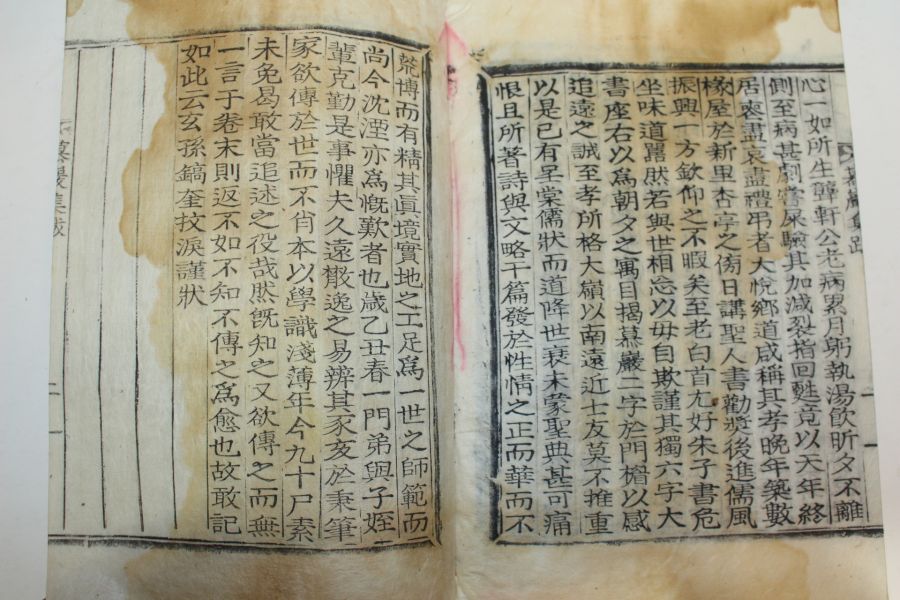 心一如所生韓軒公老病累月躬執湯飮昕夕不離
側至病甚劇嘗屎驗其加減裂指回甦竟以天年終
居喪盡哀盡禮弔者大悅鄉道咸稱其孝晚年築數
椽屋於新里杏亭之傍日講聖人書勸奬後進儒風
振興一方欽仰之不暇矣至老白首尤好朱子書危
坐味道嚣然若與世相忘以毋自欺謹其獨六字大
書座右以爲朝夕之寓目揭慕嚴二字於門楣以感
追遠之誠至孝所格大嶺以南遠近士友莫不推重
以是已有呈棠儒狀而道降世衰未蒙聖典甚可痛
恨且所著詩與文略干篇發於性情之正而華而不
荒博而有精其眞境實地之工足爲一世之師範而
尚今沈湮亦爲慨歎者也歲乙丑春一門弟與子姪
輩克勤是事懼夫久遠散逸之易辨其豕亥於秉筆
家欲傳於世而不肖本以學識淺薄年今九十尸素
未免曷敢當追述之役哉然旣知之又欲傳之而無
一言于卷末則返不如不知不傳之爲愈也故敢記
如此云玄孫鎬奎抆淚謹狀